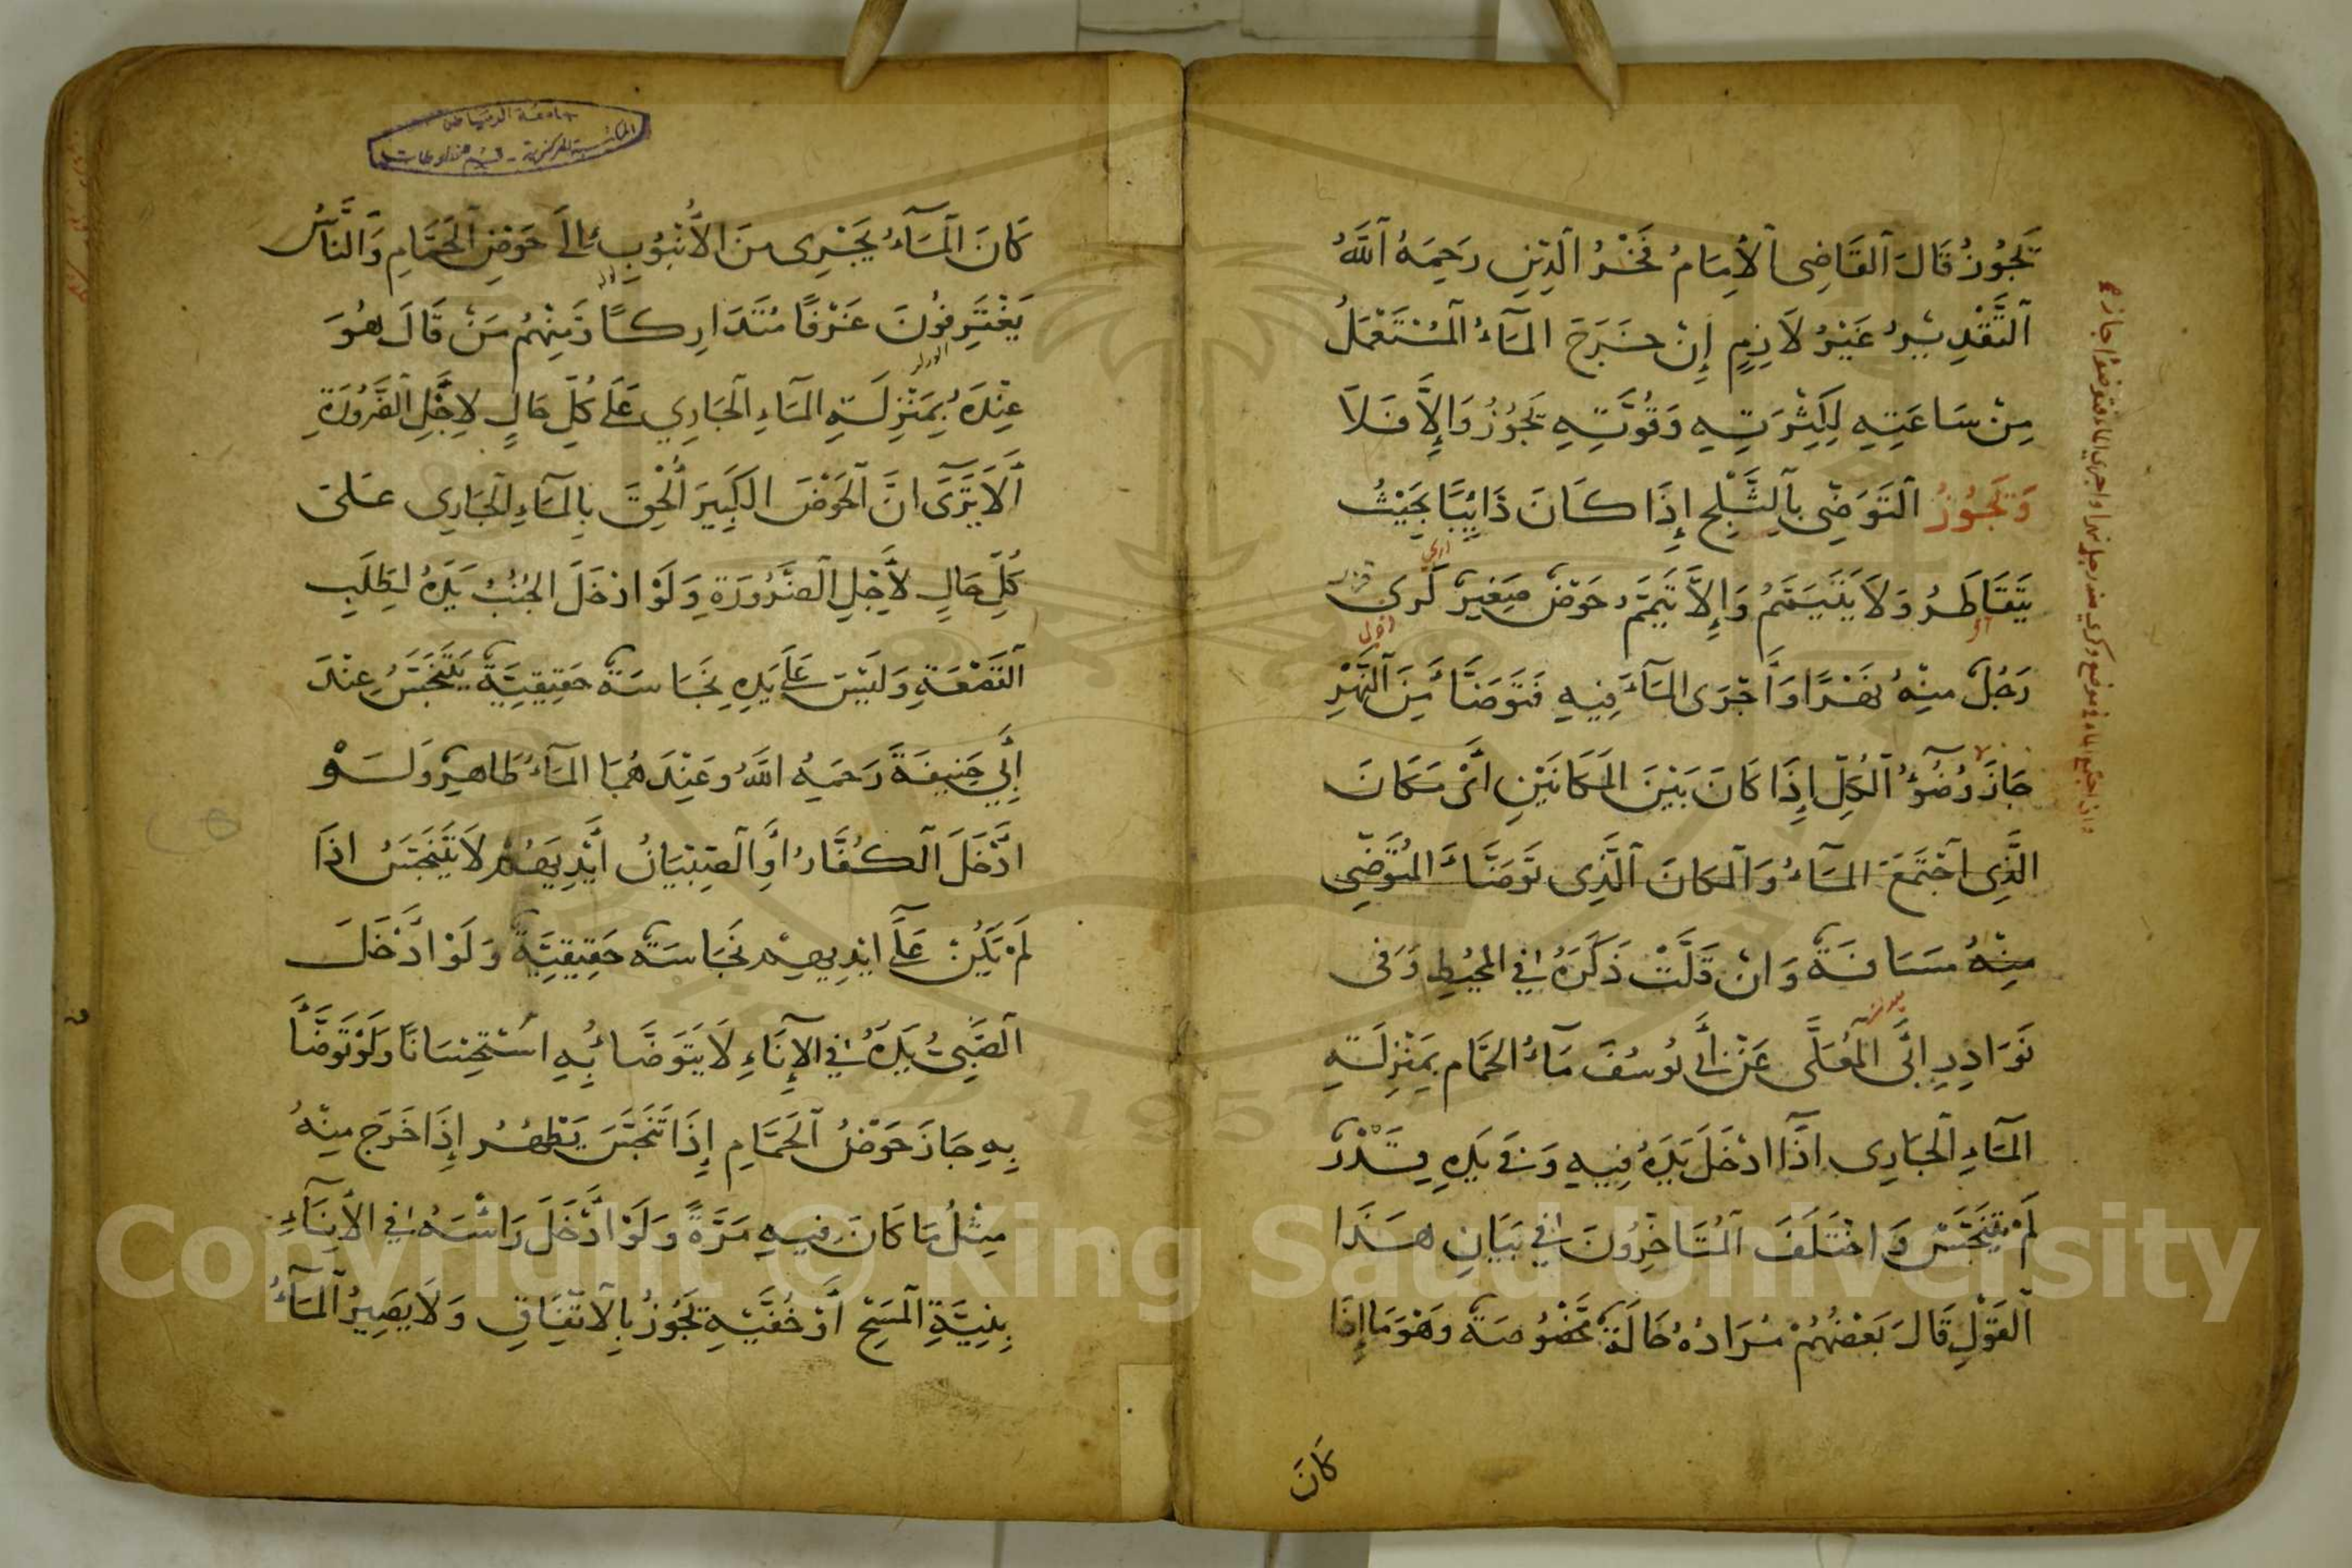 تَجُوزُ قَالَ ٱلقَاضِى ٱلْأِمَامُ فَخْرُ ٱلدِّينِ رَحِمَهُ ٱللَّهُ
ٱلتَّقْدِيْرُ غَيْرُ لَازِمٍ إِنْ خَرَجَ المَآءُ ٱلمُسْتَعْمَلُ
مِنْ سَاعَتِهِ لِكِثْرَتِهِ وَقُوَّتِهِ تَجُوزُ وَالِاَّ فَلَا
وَتَجُوزُ ٱلتَوَضِّى بِٱلثَّلْجِ إِذَا كَانَ ذَائِبًا بِحَيْثُ
يَتَقَاطَرُ وَلَا يَتَيَمَّمُ وَإِلاَّ تَيَمَّمَ حَوْضٌ صَغِيرٌ كَرى
رَجُلٌ مِنْهُ نَهْرًا وَأَجْرَى المَآءَ فِيهِ فَتَوَضَّأَ مِنَ ٱلنَّهْرِ
جَازَ وُضُوْءُ ٱلكُلِّ إِذَا كَانَ بَيْنَ المَكَانَيْنِ أَىْ مَكَانَ
الَّذِى ٱجْتَمَعَ المَآءُ وَٱلمَكَانَ ٱلَّذِى تَوَضَّأَ المُتَوَضِّى
مِنْهُ مَسَافَةٌ وَانْ قَلَّتْ ذَكَرَهُ فِي المُحِيْطِ وَفى
نَوَادِرِ ابَى ٱلمُعَلَّى عَنْ أَبِي يُوسُفَ مَآءُ الحَمَّامِ بِمَنْزِلَتِهِ
المَآءِ ٱلجَارِى اذَآ ادْخَلَ يَدَهُ فِيهِ وَفي يَدِهِ قَذْرٌ
لَمْ يَتَنَجَّسْ وَاخْتَلَفَ ٱلمُتَاَخِّرُونَ فِي بَيَانِ هَذَا
ٱلقَوْلِ قَالَ بَعْضُهُمْ مُرَادُهُ حَالَةٌ مَخْصُوصَةٌ وَهُوَ مَا إِذَا
كَانَ
واذا اجتمع الماء في موضع وكرى منه رجل نهرا واجرى الماء فتوضؤا جاز
جامعة الرياض
المكتبة المركزية - قسم مخطوطات
كَانَ ٱلمَآءُ يَجْرِى مِنَ الْأُنْبُوبِ الَى حَوْضِ ٱلحَمَّامِ وَالنَّاسُ
يَغْتَرِفُونَ غَرْفًا مُتَدَارِكًا وَمِنْهُمْ مَنْ قَالَ هُوَ
عِنْدَهُ بِمَنْزِلَتِهِ المَآءِ ٱلجَارِي عَلَى كُلِّ حَالٍ لِاَجْلِ ٱلضَّرُورَةِ
أَلَا يَرَى انَّ ٱلحَوْضَ الكَبِيرَ أُلْحِقَ بِالمَآءِ ٱلجَارِى عَلىَ
كُلِّ حَالٍ لأَجْلِ ٱلضَّرُورَةِ وَلَوْ ادْخَلَ الجُنُبُ يَدَهُ لِطَلَبِ
ٱلقَصْعَةِ وَلَيْسَ عَلَى يَدِهِ نَجَاسَةٌ حَقِيقِيَّةٌ يَتَنَجَّسُ عِنْدَ
أَبِي حَنِيفَةَ رَحمَهُ اللَّهُ وَعِنْدَهُمَا المَآءُ طَاهِرٌ وَلَوْ
ادْخَلَ ٱلكُفَّارُ أَوِ ٱلصِّبْيَانُ أَيْدِيَهُمْ لَا يَتَنَجَّسُ اذَا
لَمْ يَكُنْ عَلَى ايْدِيهِمْ نَجَاسَةٌ حَقِيقِيَّةٌ وَلَوْ ادْخَلَ
ٱلصَّبِىُّ يَدَهُ فِي الإِنَاءِ لَا يَتَوَضَّأُ بِهِ اسْتِحْسَانًا وَلَوْ تَوَضَّأَ
بِهِ جَازَ حَوْضُ ٱلحَمَّامِ إِذَا تَنَجَّسَ يَطْهُرُ إِذَا خَرَجَ مِنْهُ
مِثْلُ مَا كَانَ فِيهِ مَرَّةً وَلَوْ ادْخَلَ رَأْسَهُ فِي الْأِنَآءِ
بِنِيَّةِ ٱلمَسْحِ أَوْ خُفَّيْهِ تَجُوزُ بِالاتِّفَاقِ وَلَا يَصِيرُ ٱلمَآءُ